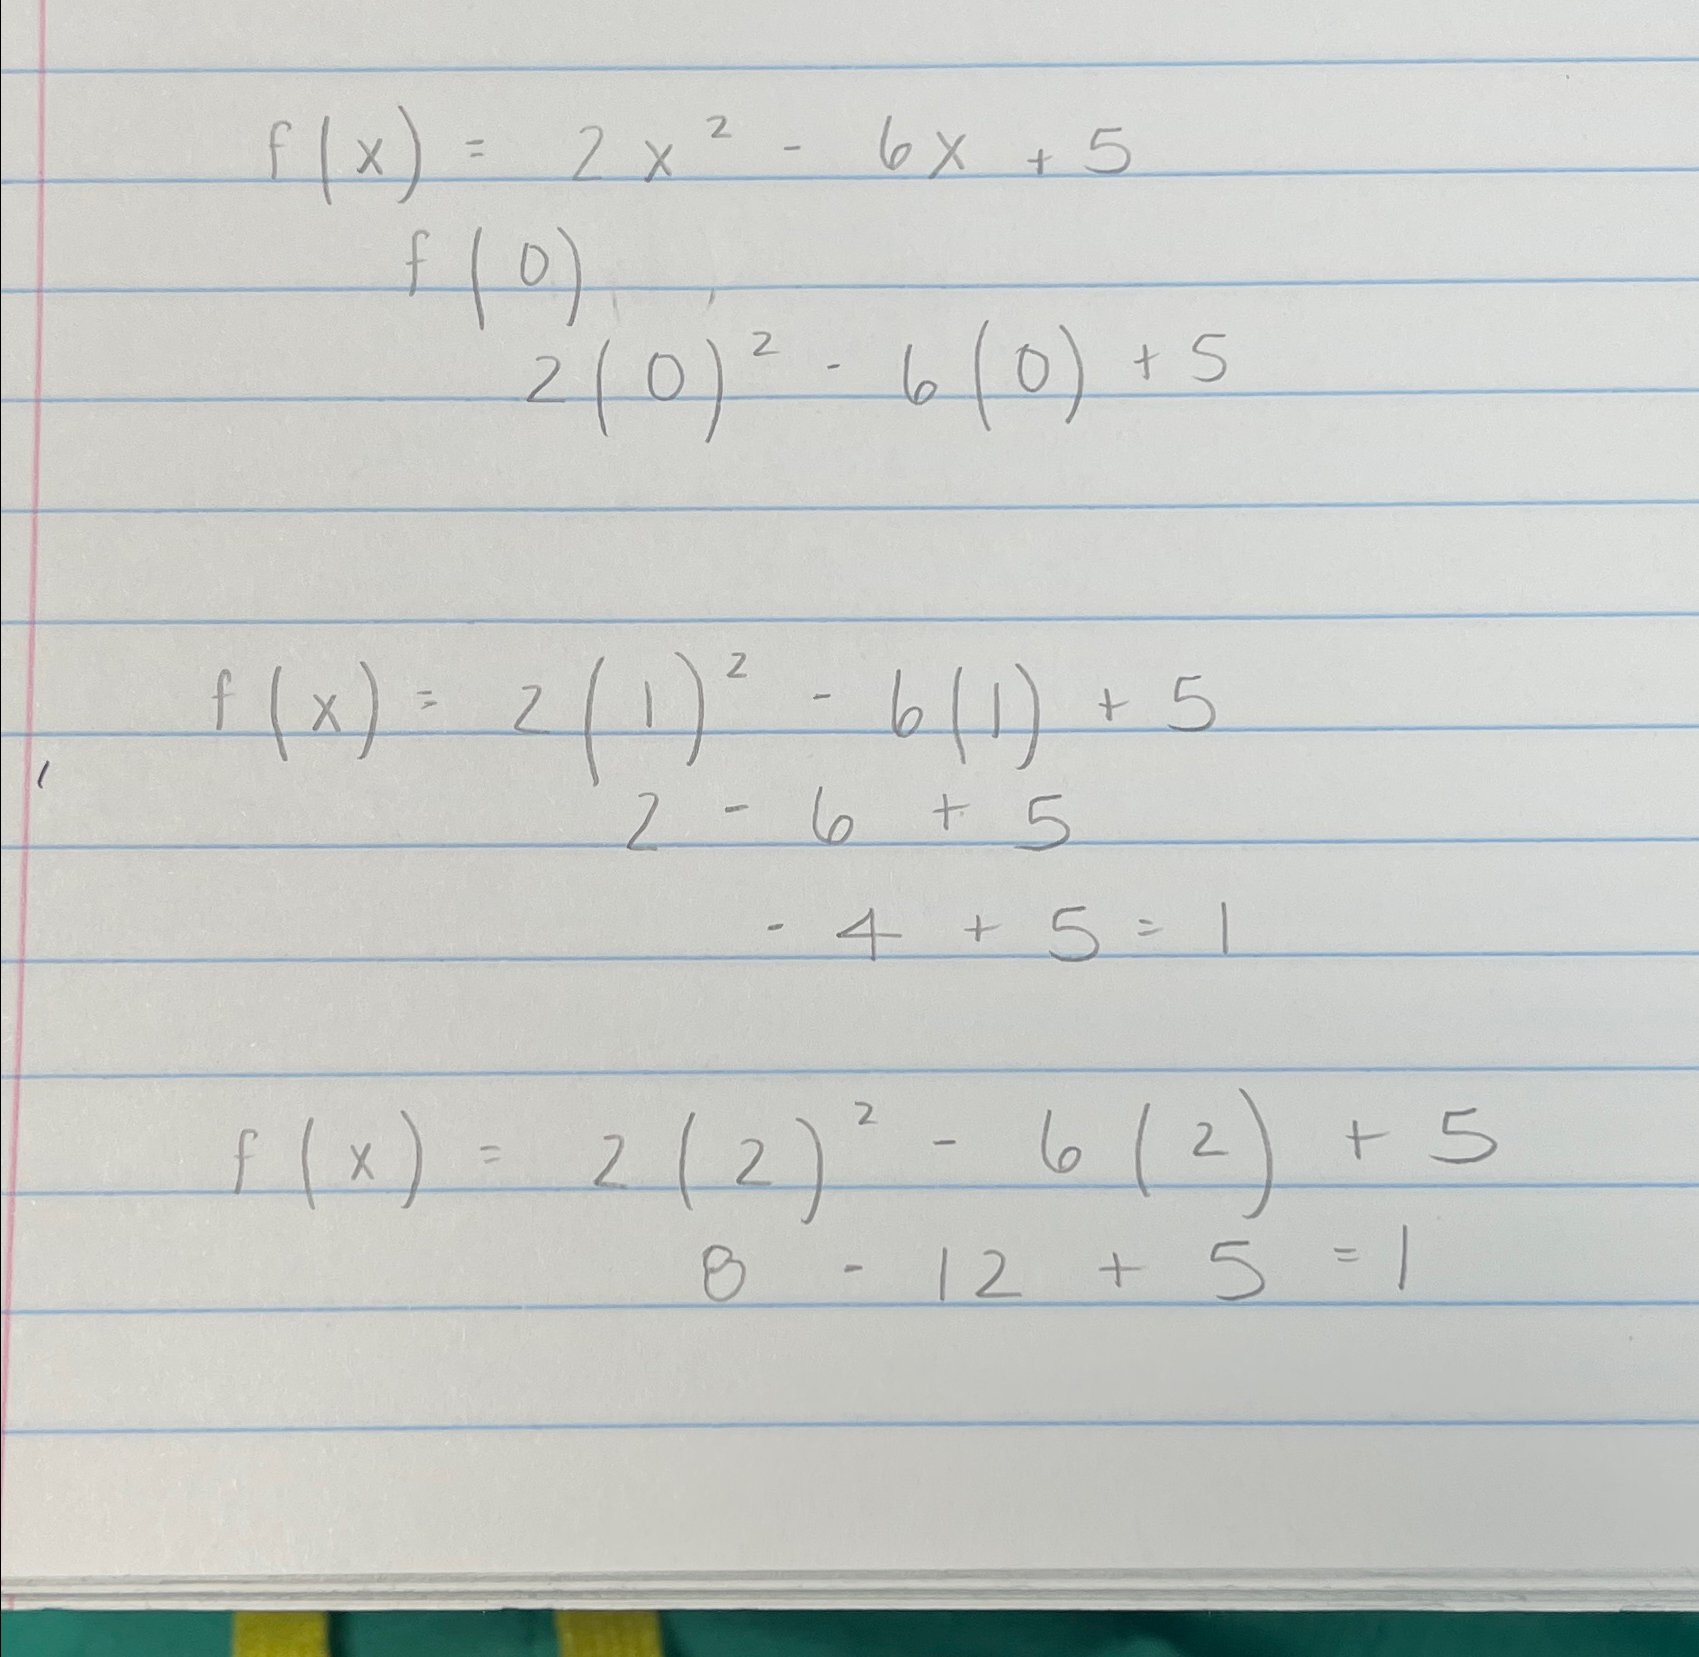 f(x) = 2x² - 6x + 5
f(0)
2(0)² - 6(0) + 5
f(x) = 2(1)² - 6(1) + 5
2 - 6 + 5
- 4 + 5 = 1
f(x) = 2(2)² - 6(2) + 5
8 - 12 + 5 = 1